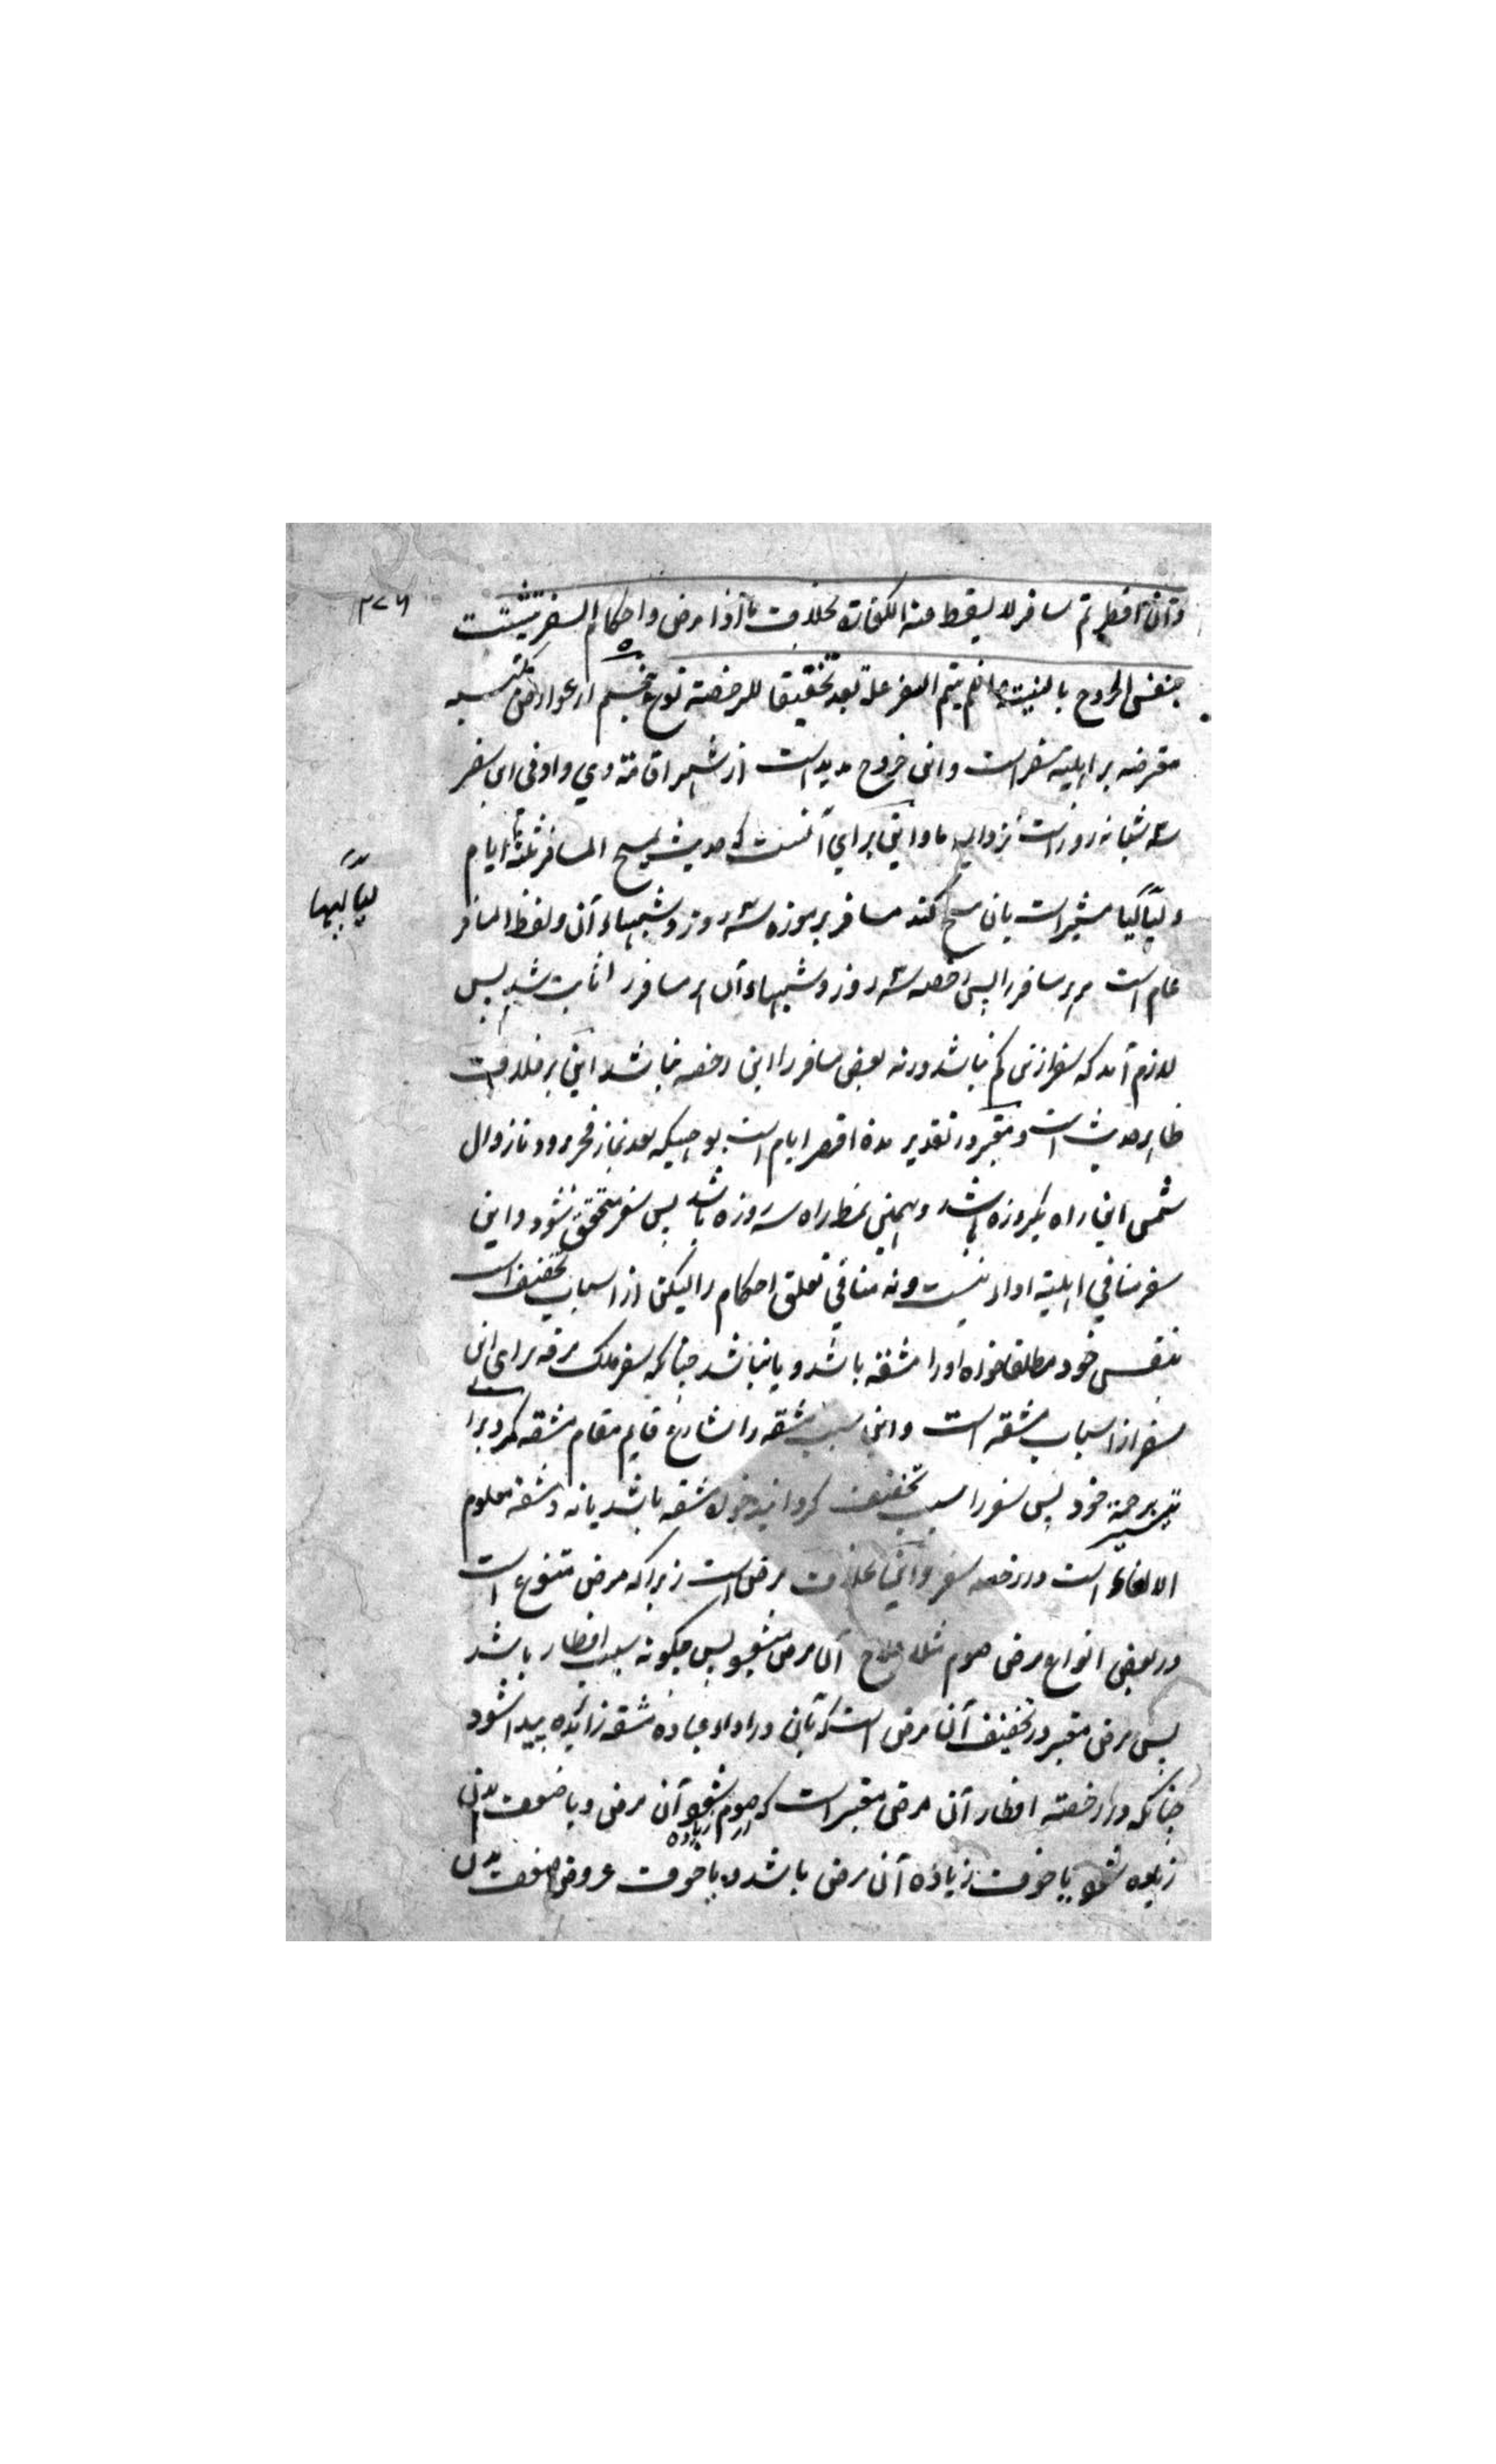 ۳۷۶
وان افطر ثم سافر لا یسقط عنه الکفارة بخلاف ما اذا مرض واحکام السفر تثبت
بنفس الخروج بالسنة وان لم یتم السفر علة بعد تحقیقا للرخصة نوع پنجم از عوارض مکتسبه
معترضه بر اهلیة سفر است واین خروج مدید است از شهر اقامة وی وادنی این سفر
سه شبانه روز است نزد ما واین برای آنست که حدیث یمسح المسافر ثلثة ایام
ولیالیها مشیر است بان مسح کند مسافر بر موزه سه روز وشبهاء آن ولفظ المسافر
لیالیها
عام است مر هر مسافر را پس رخصه سه روز وشبهاء آن هر مسافر را ثابت شد پس
لازم آمد که سفر ازین کم نباشد ورنه بعض مسافر را این رخصه نباشد این بر خلاف
ظاهر حدیث است ومعتبر در تقدیر مدة اقصر ایام است بوجهیکه بعد نماز فجر برود تا زوال
شمس این راه یکروزه باشد وهمین نمط راه سه روزه باشد پس سفر متحقق شود واین
سفر منافی اهلیة اداء نیست ونه منافی تعلق احکام را لیکن از اسباب تخفیف است
بنفس خود مطلقا خواه او را مشقة باشد ویا نباشد چنانکه سفر ملک مرفه برای این
سفر از اسباب مشقه است واین سبب مشقه را شارع قایم مقام مشقه کرد برای
تیسیر رحمة خود پس سفر را سبب تخفیف کردانید خواه مشقه باشد یا نه ومشقه معلوم
الالغاء است در رخصه سفر واین بخلاف مرض است زیرا که مرض متنوع است
در بعض انواع مرض صوم علاج آن مرض میشود پس چکونه سبب افطار باشد
پس مرض معتبر در تخفیف آن مرض است که بآن در اداء عباده مشقه زایده پیدا شود
چنانکه در رخصة افطار آن مرض معتبر است که از صوم زیاده شود آن مرض ویا ضعف بدن
زیاده شود یا خوف زیاده آن مرض باشد ویا خوف عروض ضعف بدن